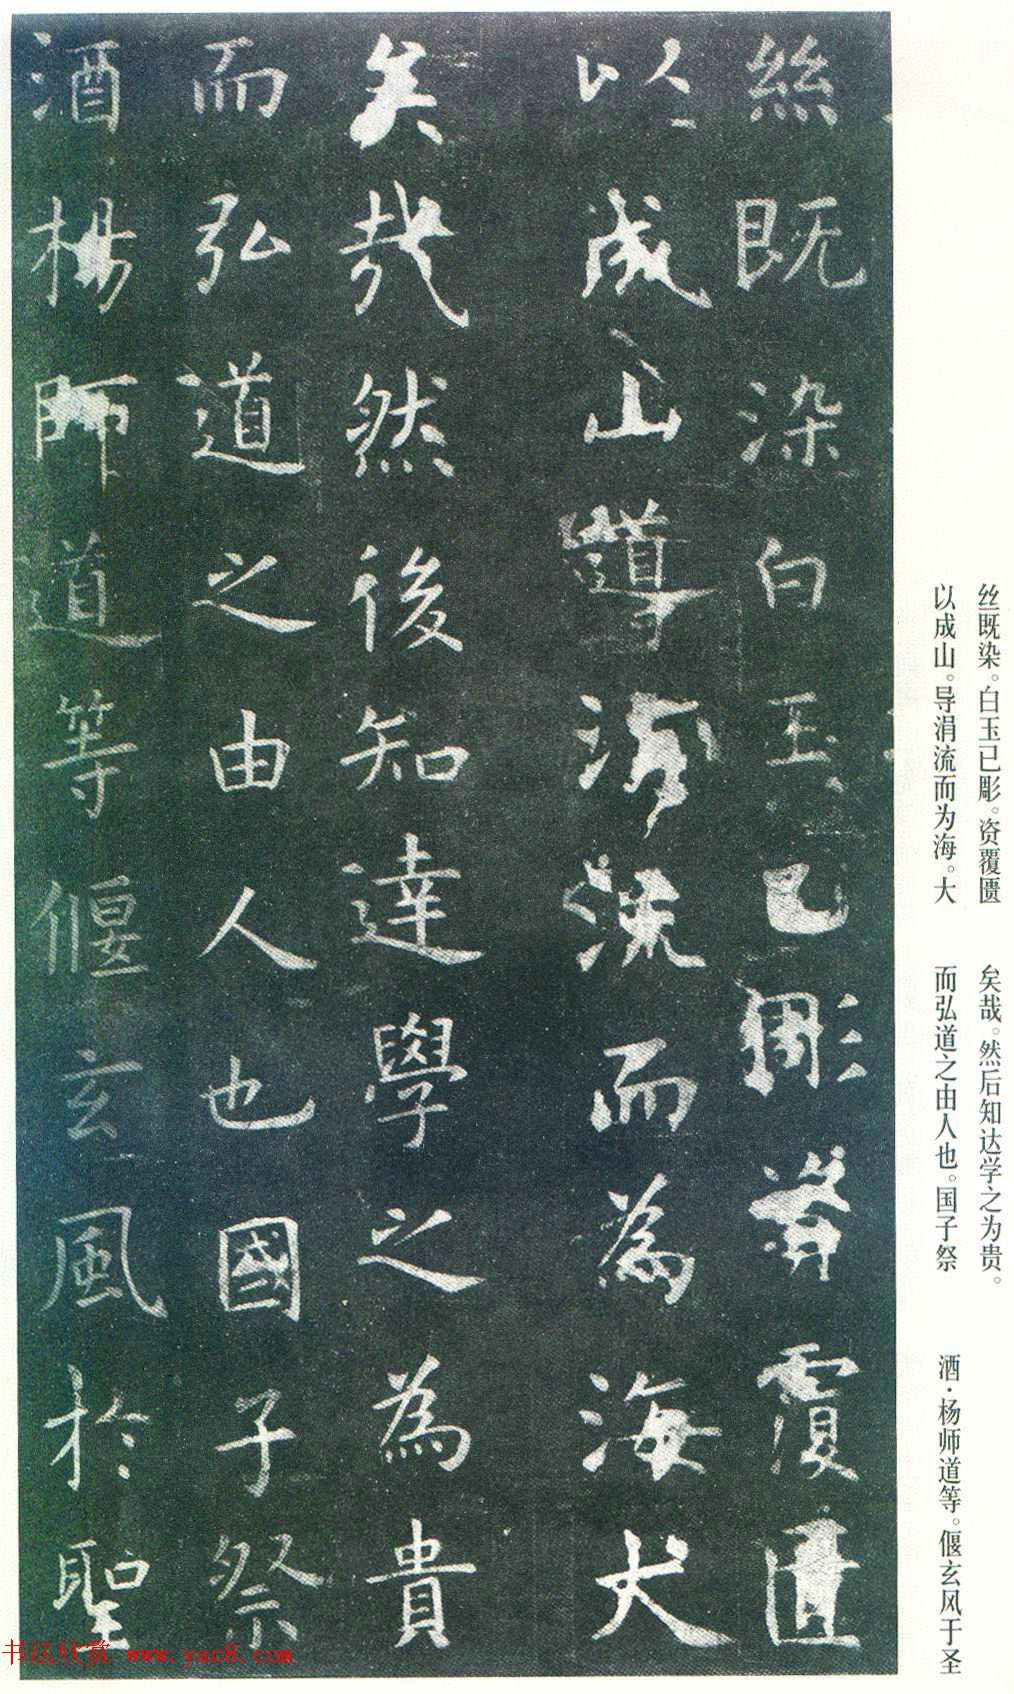 絲既染白玉已彫資覆匱
以成山導涓流而為海大
矣哉然後知達學之為貴
而弘道之由人也國子祭
酒楊師道等偃玄風於聖
丝既染。白玉已彫。资覆匮
以成山。导涓流而为海。大
矣哉。然后知达学之为贵。
而弘道之由人也。国子祭
酒·杨师道等。偃玄风于圣
书法欣赏 www.yac8.com